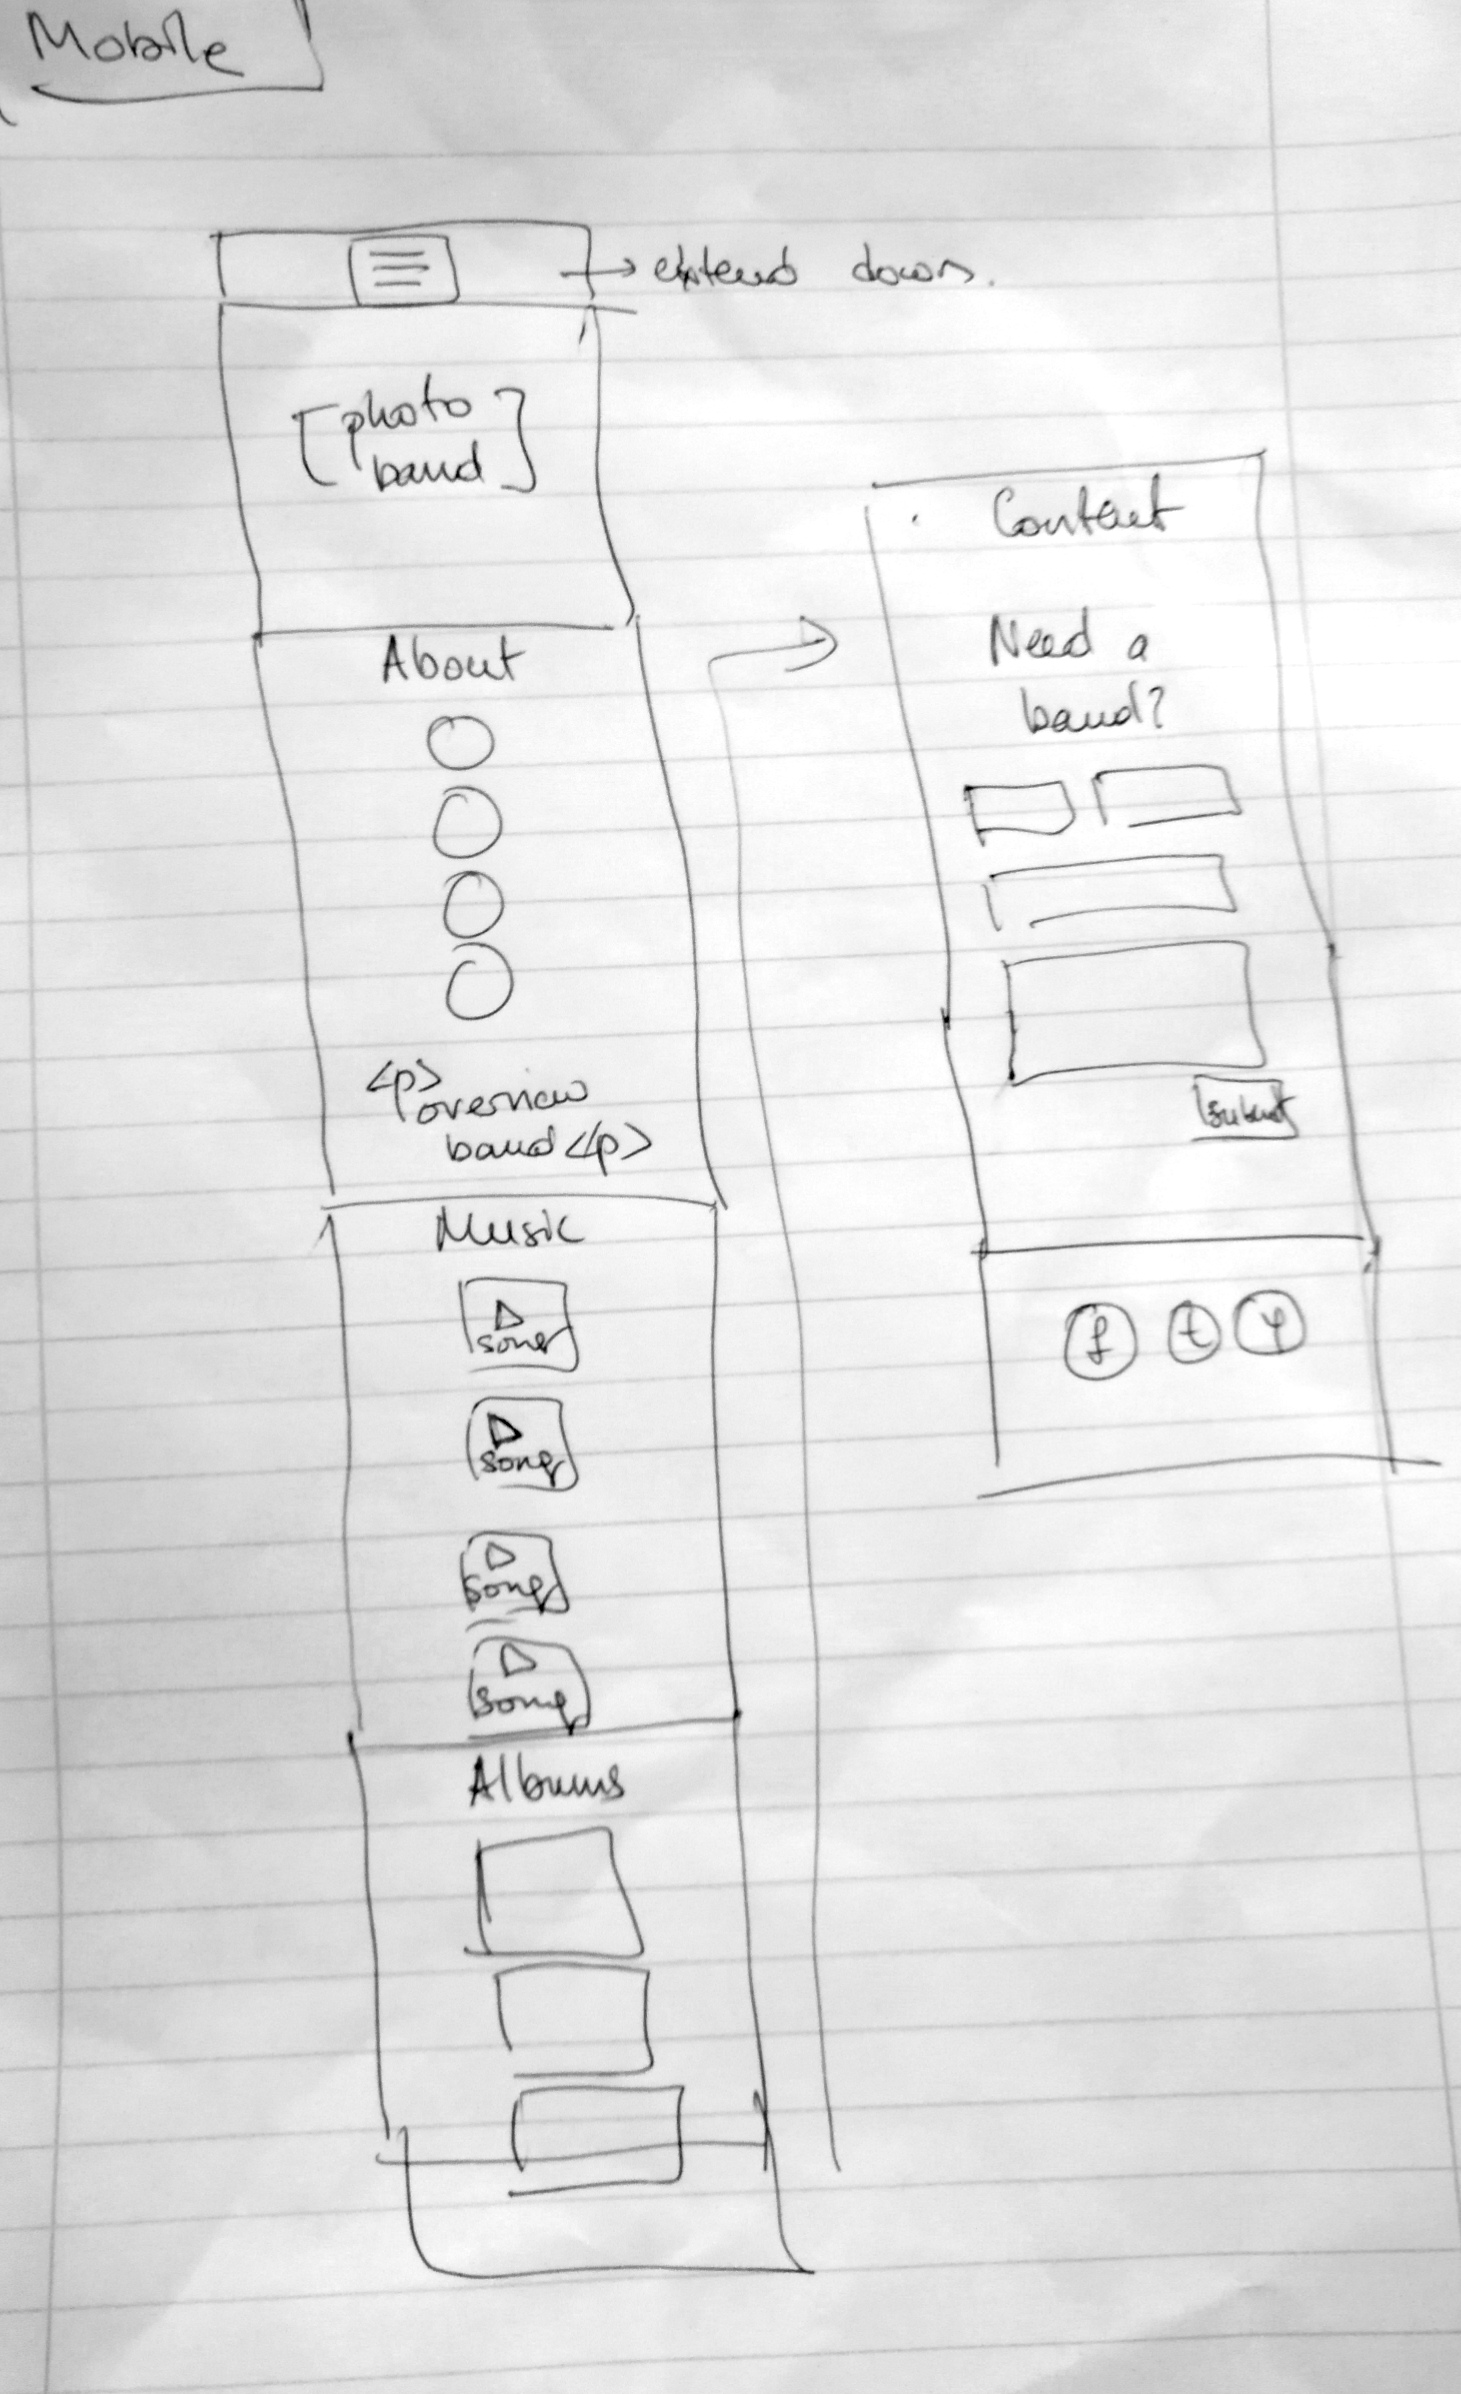 Mobile
→ extend down.
[photo
band]
About
<p>
overview
band </p>
Music
song
song
song
song
Albums
Contact
Need a
band?
submit
f t y